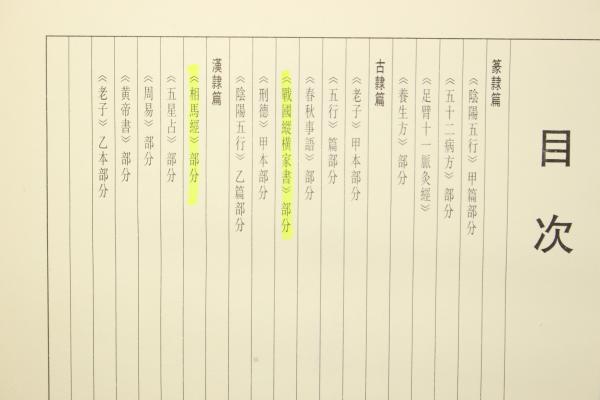 目次
篆隷篇
《陰陽五行》甲篇部分
《五十二病方》部分
《足臂十一脈灸經》
《養生方》部分
古隷篇
《老子》甲本部分
《五行》篇部分
《春秋事語》部分
《戰國縱橫家書》部分
《刑德》甲本部分
《陰陽五行》乙篇部分
漢隷篇
《相馬經》部分
《五星占》部分
《周易》部分
《黄帝書》部分
《老子》乙本部分